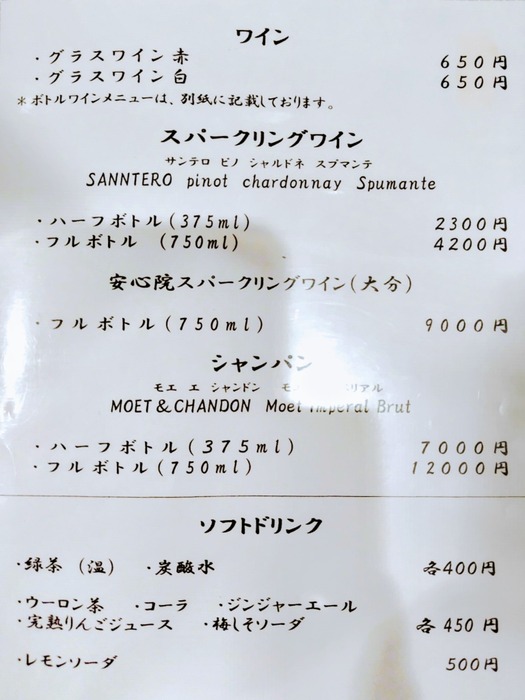 ワイン
・グラスワイン 赤 650円
・グラスワイン 白 650円
*ボトルワインメニューは、別紙に記載しております。
スパークリングワイン
サンテロ ピノ シャルドネ スプマンテ
SANNTERO pinot chardonnay Spumante
・ハーフボトル(375ml) 2300円
・フルボトル (750ml) 4200円
安心院スパークリングワイン(大分)
・フルボトル(750ml) 9000円
シャンパン
モエ エ シャンドン
MOET & CHANDON Moet Imperal Brut
・ハーフボトル(375ml) 7000円
・フルボトル(750ml) 12000円
ソフトドリンク
・緑茶 (温) ・炭酸水 各400円
・ウーロン茶 ・コーラ ・ジンジャーエール
・完熟りんごジュース ・梅しそソーダ 各450円
・レモンソーダ 500円